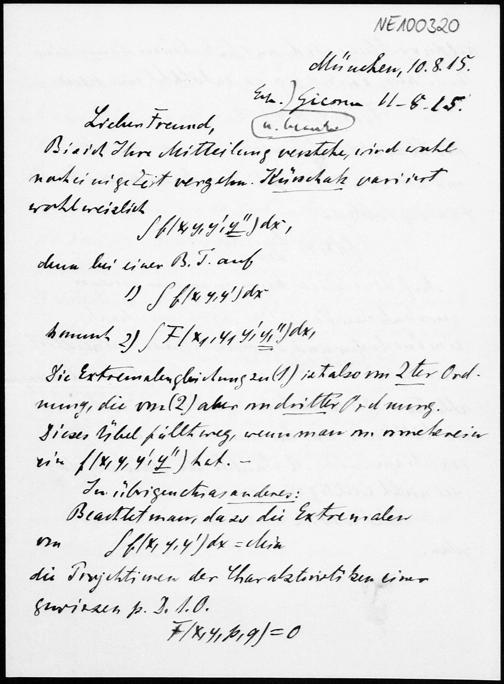 NE100320
München, 10.8.15.
Erh. Giconn 11-8-15.
Lieber Freund,
Bis ich Ihre Mitteilung verstehe, wird wohl
noch einige Zeit vergehn. Kürschak variiert
wohlweislich
∫ f(x,y,y',y'')dx,
denn bei einer B.T. auf
1) ∫ f(x,y,y')dx
kommt 2) ∫ F(x₁,y₁,y₁',y₁'')dx₁
Die Extremalengleichung zu (1) ist also von 2ter Ord-
nung, die von (2) aber von dritter Ordnung.
Dieses Übel fällt weg, wenn man von vornherein
ein f(x,y,y',y'') hat. –
Im übrigen etwas anderes:
Beachtet man, dass die Extremalen
von ∫ f(x,y,y')dx = Min
die Projektionen der Charakteristiken einer
gewissen p. D. 1. O.
F(x,y,p,q)=0